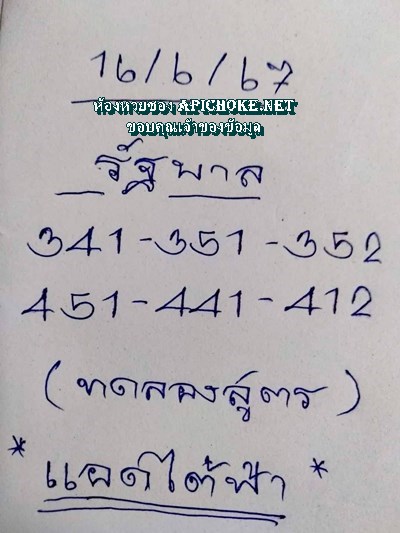 16/6/67
ห้องหวยซอง APICHOKE.NET
ขอบคุณเจ้าของข้อมูล
รัฐบาล
341-351-352
451-441-412
(ทดลองสูตร)
* แอดใต้ฟ้า *